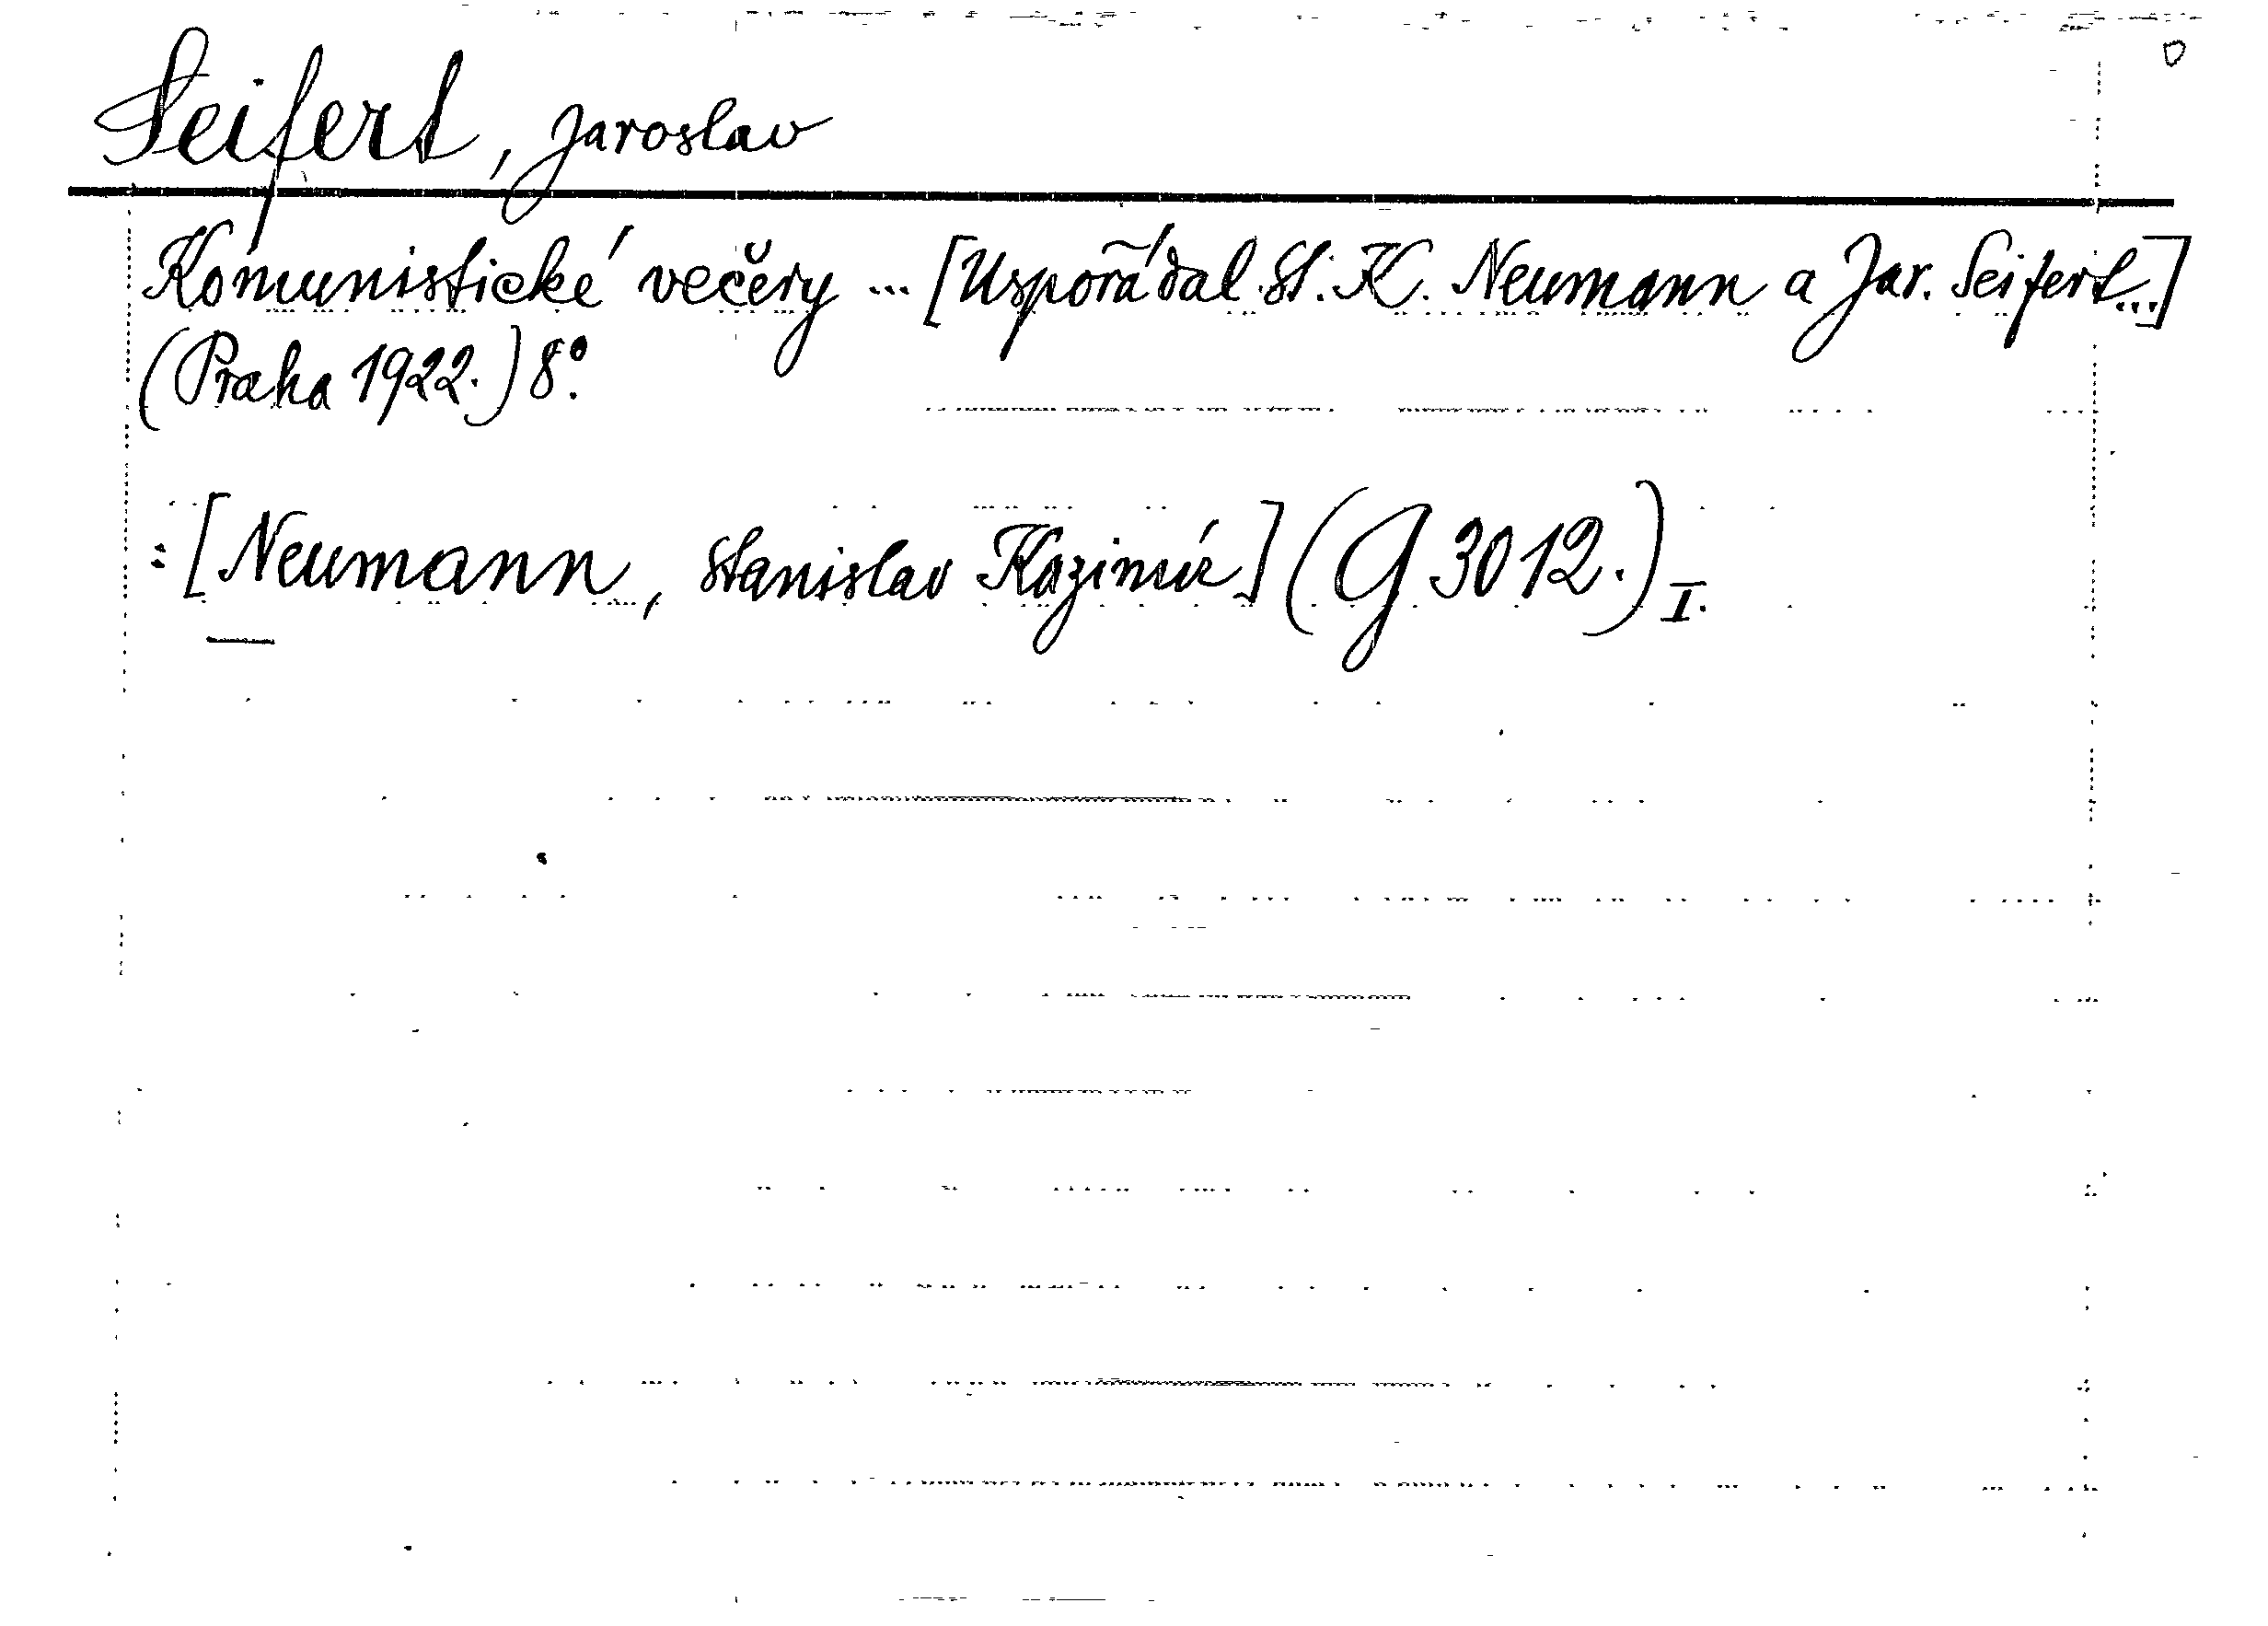 Seifert, Jaroslav
Komunistické večery ... [Uspořádal St. K. Neumann a Jar. Seifert...]
(Praha 1922.) 8°.
: [Neumann, Stanislav Kazimír] (G 3012.) I.